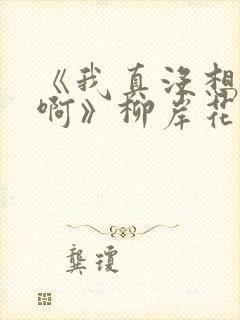 《我真没想
啊》柳岸花
龚琼